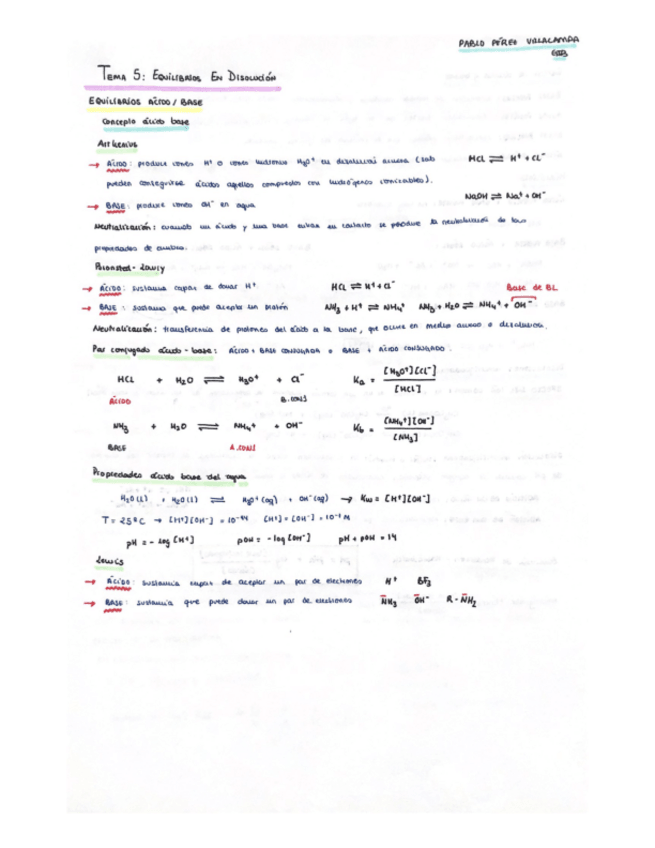 PABLO PÉREZ VILLACAMPA
TEMA 5: EQUILIBRIOS EN DISOLUCIÓN
EQUILIBRIOS ÁCIDO / BASE
Concepto ácido base
Arrhenius
→ ÁCIDO: produce iones H⁺ o iones hidronio H₃O⁺ en disolución acuosa (solo HCl ⇌ H⁺ + Cl⁻
pueden considerarse ácidos aquellos compuestos con hidrógenos ionizables).
NaOH ⇌ Na⁺ + OH⁻
→ BASE: produce iones OH⁻ en agua
Neutralización: cuando un ácido y una base entran en contacto se produce la neutralización de las
propiedades de ambas.
Bronsted-Lowry
→ ÁCIDO: sustancia capaz de donar H⁺ HCl ⇌ H⁺ + Cl⁻ Base de BL
→ BASE: sustancia que puede aceptar un protón NH₃ + H⁺ ⇌ NH₄⁺ NH₃ + H₂O ⇌ NH₄⁺ + OH⁻
Neutralización: transferencia de protones del ácido a la base, que ocurre en medio acuoso o disolución.
Par conjugado ácido-base: ÁCIDO + BASE CONJUGADA o BASE + ÁCIDO CONJUGADO.
HCl + H₂O ⇌ H₃O⁺ + Cl⁻ Ka = [H₃O⁺][Cl⁻] / [HCl]
ÁCIDO B.CONJ
NH₃ + H₂O ⇌ NH₄⁺ + OH⁻ Kb = [NH₄⁺][OH⁻] / [NH₃]
BASE A.CONJ
Propiedades ácido base del agua
H₂O (l) + H₂O (l) ⇌ H₃O⁺ (aq) + OH⁻ (aq) → Kw = [H⁺][OH⁻]
T = 25ºC → [H⁺][OH⁻] = 10⁻¹⁴ [H⁺] = [OH⁻] = 10⁻⁷ M
pH = - log [H⁺] pOH = - log [OH⁻] pH + pOH = 14
Lewis
→ ÁCIDO: sustancia capaz de aceptar un par de electrones H⁺ BF₃
→ BASE: sustancia que puede donar un par de electrones N̅H₃ O̅H⁻ R-N̅H₂